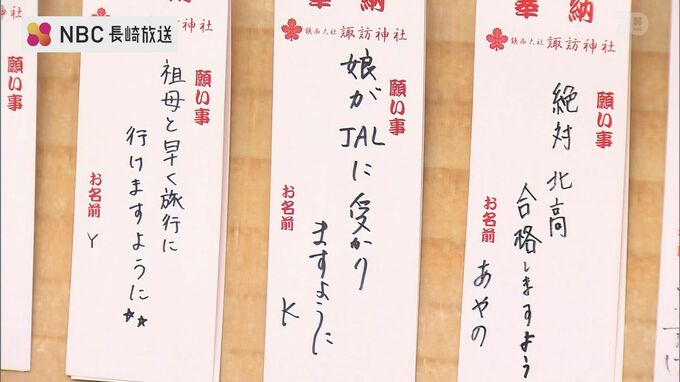 NBC 長崎放送
奉納
鎮西大社 諏訪神社
願い事
絶対 北高
合格しますよう
お名前
あやの
鎮西大社 諏訪神社
願い事
娘が
JALに受かり
ますように
お名前
K
諏訪神社
願い事
祖母と早く旅行に
行けますように☆☆
お名前
Y